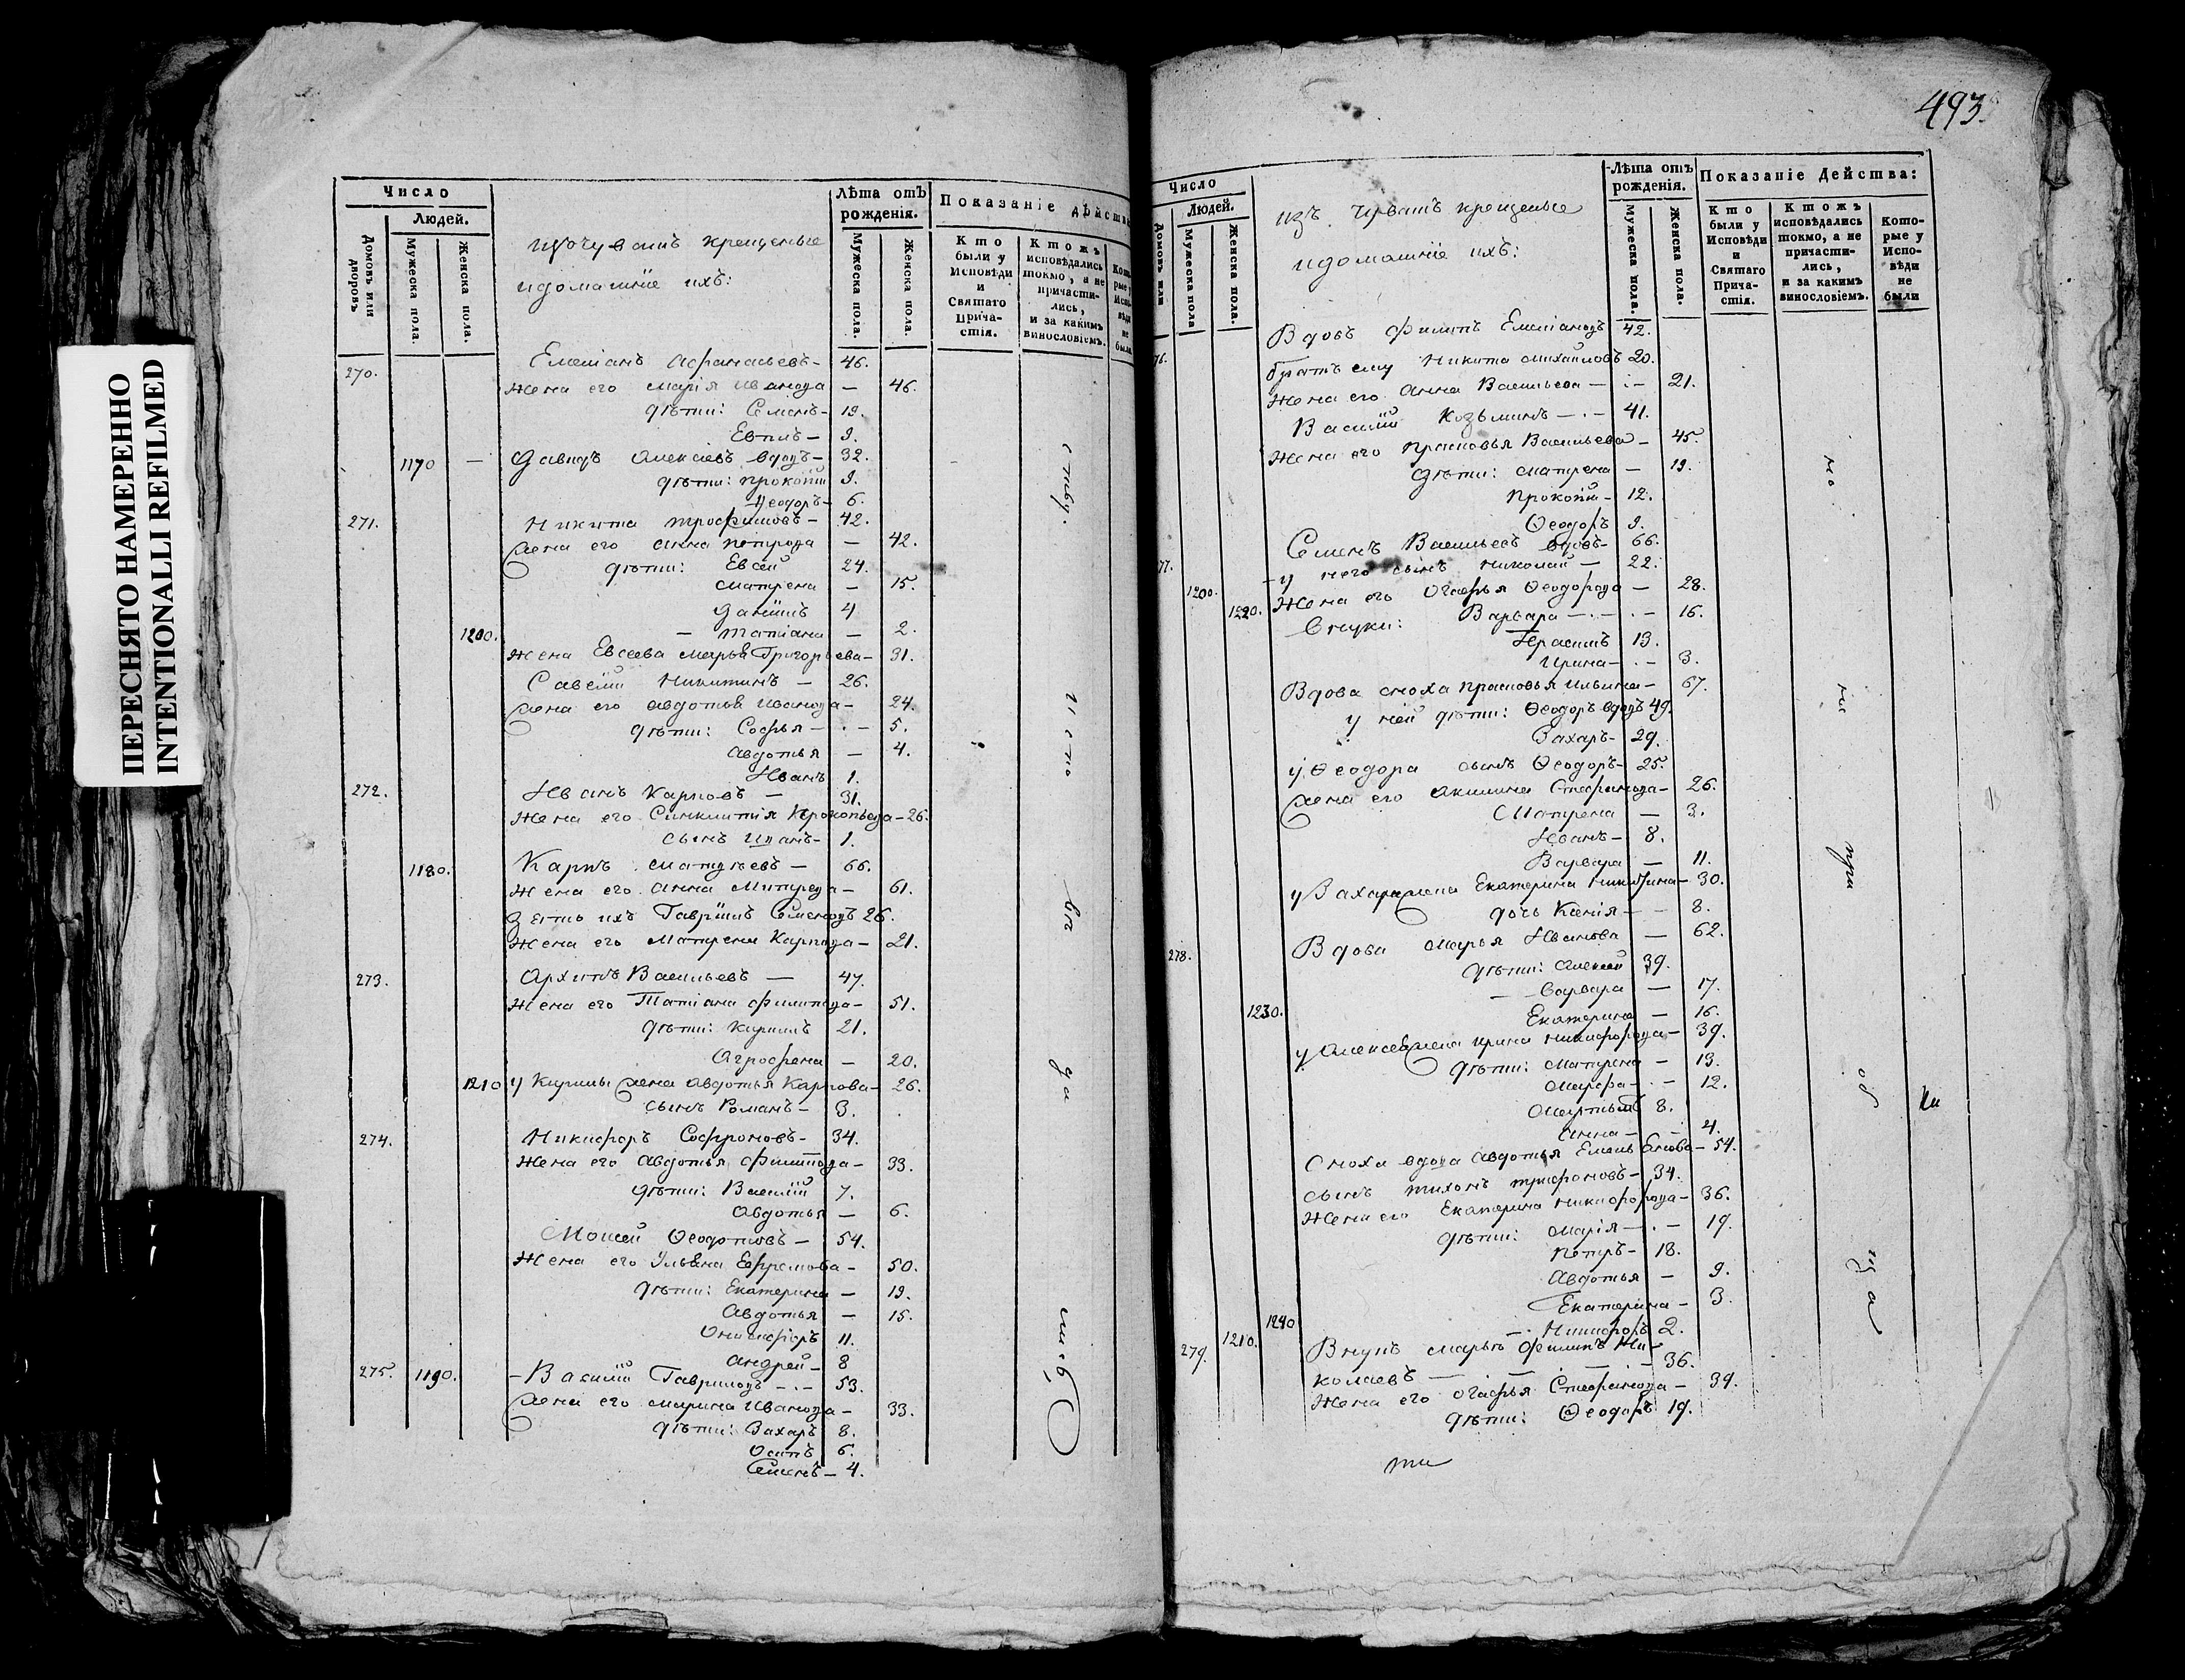 ПЕРЕСНЯТО НАМЕРЕННО
INTENTIONALLI REFILMED
Число
Людей.
Домовъ или дворовъ
Мужеска пола.
Женска пола.
крещеные
и домашніе ихъ:
Лѣта отъ рожденія.
Мужеска пола.
Женска пола.
Показаніе дѣйств
Кто были у Исповѣди и Святаго Прича-стія.
Ктожъ исповѣдались токмо, а не причасти-лись, и за какимъ винословіемъ.
270. Емельянъ Афанасьевъ – 46.
Жена его Марія Иванова – 46.
дѣти: Семенъ – 19.
Евплъ – 9.
1170 — Давидъ Алексѣевъ вдовъ – 32.
дѣти: Прокопій 9.
Ѳеодоръ – 6.
271. Никита Трофимовъ – 42.
Жена его Анна Петрова – 42.
дѣти: Евсѣй 24.
Матрена – 15.
Даніилъ 4
1200. – Татіана – 2.
Жена Евсеева Марья Григорьева – 31.
Савелій Никитинъ – 26.
Жена его Авдотья Иванова – 24.
дѣти: Софья – 5.
Авдотья – 4.
Иванъ 1.
272. Иванъ Карповъ – 31.
Жена его Синклитія Прокопьева – 26.
сынъ Иванъ – 1.
1180. Карпъ Матвѣевъ – 66.
Жена его Анна Митрева – 61.
Зять ихъ Гавріилъ Семеновъ 26.
Жена его Матрена Карпова – 21.
273. Архипъ Васильевъ — 47.
Жена его Татіана Филипова – 51.
дѣти: Кирилъ 21.
Агрофена – 20.
1210 У Кирилы жена Авдотья Карпова – 26.
сынъ Романъ – 3.
274. Никифоръ Софроновъ – 34.
Жена его Авдотья Филипова – 33.
дѣти: Василій 7.
Авдотья – 6.
Моисей Ѳедотовъ – 54.
Жена его Ульяна Ефремова – 50.
дѣти: Екатерина – 19.
Авдотья – 15.
Онисифоръ 11.
Андрей – 8
275. 1190. – Василій Гавриловъ – 53.
Жена его Марина Иванова – 33.
дѣти: Захаръ 8.
Осипъ 6.
Семенъ – 4.
493.
Число
Людей.
Домовъ или
Мужеска пола
Женска пола.
изъ Чувашъ крещеные
и домашніе ихъ:
Лѣта отъ рожденія.
Мужеска пола.
Женска пола.
Показаніе Действа:
Кто были у Исповѣди и Святаго Прича-стія.
Ктожъ исповѣдались токмо, а не причасти-лись, и за какимъ винословіемъ.
Кото-рые у Испо-вѣди не были
76. Вдовъ Филипъ Емельяновъ 42.
братъ ему Никита Михайловъ 20.
Жена его Анна Васильева – 21.
Василій Козьминъ – 41.
Жена его Прасковья Васильева – 45.
дѣти: Матрена – 19.
Прокопій – 12.
Ѳеодоръ 9.
77. Семенъ Васильевъ вдовъ – 66.
1200. – у него сынъ Николай – 22.
1220. Жена его Огафья Ѳеодорова – 28.
Внуки: Варвара – 16.
Герасимъ 13.
Ирина – 3.
Вдова сноха Прасковья Ильина – 67.
у ней дѣти: Ѳеодоръ вдовъ 49.
Захаръ – 29.
у Ѳеодора сынъ Ѳеодоръ – 25.
Жена его Акилина Стефанова – 26.
Матрена — 3.
Иванъ – 8.
Варвара — 11.
у Захара жена Екатерина Никитина – 30.
дочь Ксенія – 8.
278. Вдова Марья Иванова — 62.
дѣти: Алексѣй 39.
— Варвара — 17.
1230. Екатерина – 16.
у Алексея жена Ирина Никифорова – 39.
дѣти: Матрена – 13.
Марфа – 12.
8.
Анна – 4.
Сноха вдова Авдотья Емельянова – 54.
сынъ Тихонъ Трифоновъ – 34.
Жена его Екатерина Никифорова – 36.
дѣти: Марія – 19.
Петръ – 18.
Авдотья – 9.
Екатерина – 3.
1240 – Никифоръ 2.
279. 1210. Внукъ Марьи Филипъ Ни-
колаевъ — 36.
Жена его Огафья Стефанова – 39.
дѣти: Ѳеодоръ 19.
ти